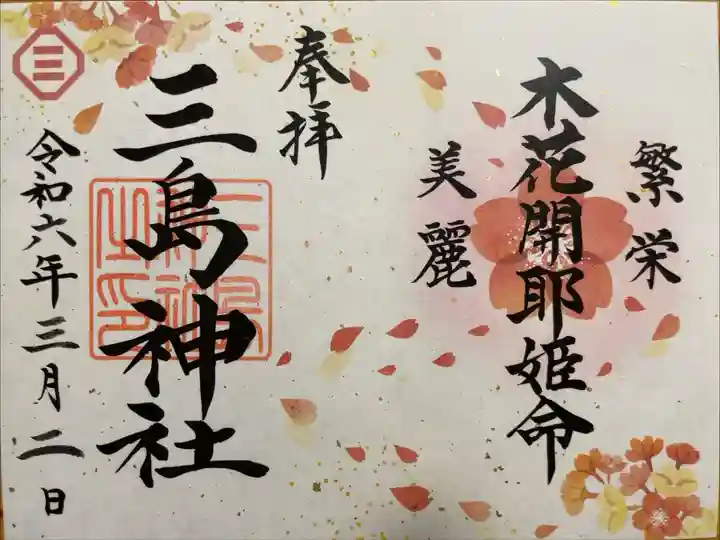 繁栄
木花開耶姫命
美麗
奉拝
三島神社
令和六年三月二日